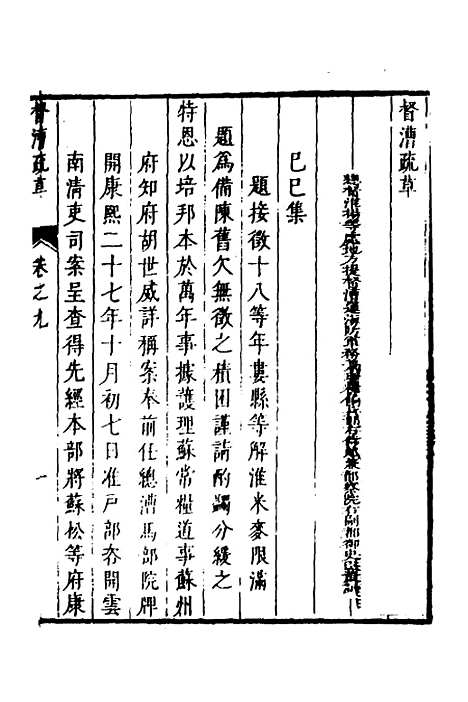 督漕疏草
巳巳集
題接徵十八等年婁縣等解淮米麥限滿
題爲備陳舊欠無徵之積困謹請酌蠲分緩之
特恩以培邦本於萬年事據護理蘇常糧道事蘇州
府知府胡世威詳稱案奉前任總漕馬部院牌
開康熙二十七年十月初七日准戸部咨開雲
南清吏司案呈查得先經本部將蘇松等府康
督漕疏草
卷之九
一